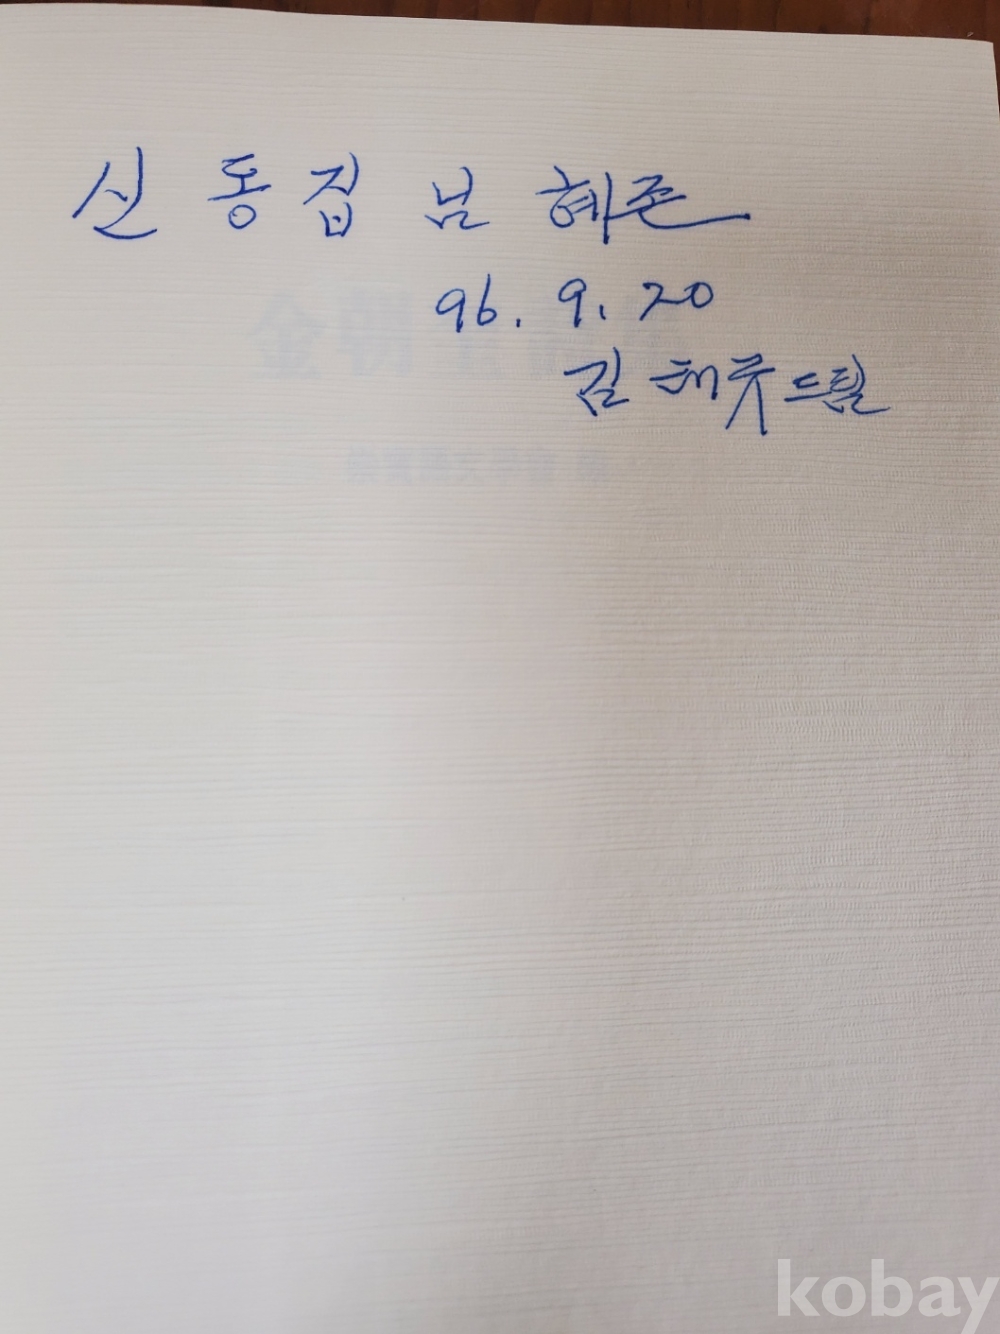 신동집 님 혜존
96. 9. 20
김 해규 드림
kobay